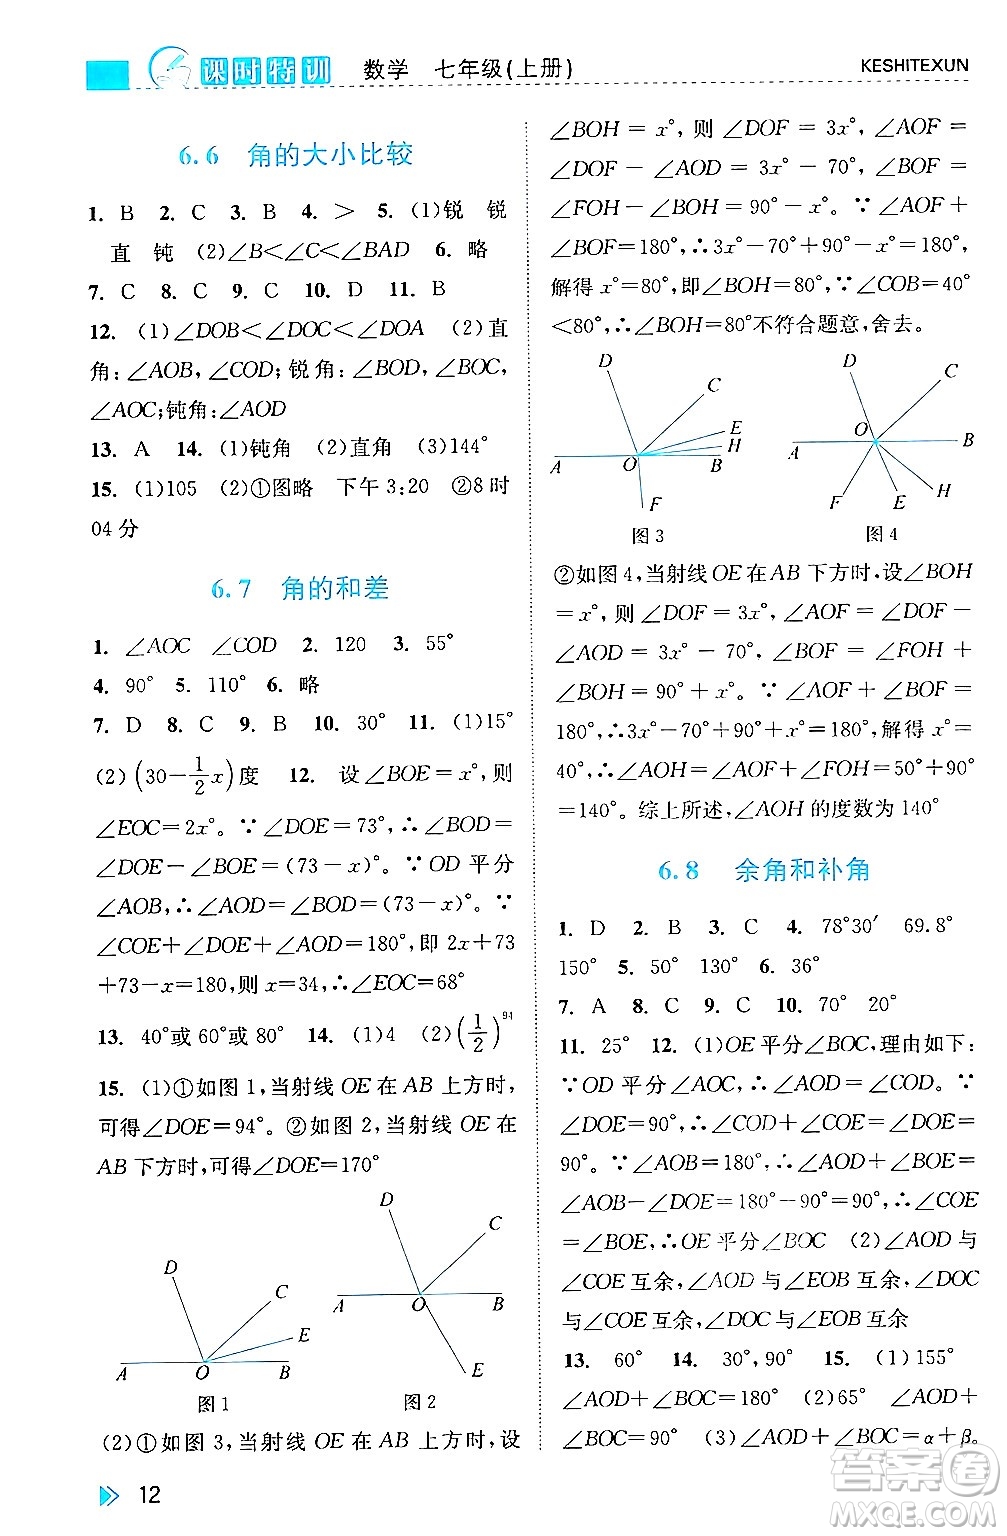 课时特训 数学 七年级(上册)
KESHITEXUN
6.6 角的大小比较
1. B 2. C 3. B 4. > 5. (1)锐 锐
直 钝 (2)∠B<∠C<∠BAD 6. 略
7. C 8. C 9. C 10. D 11. B
12. (1)∠DOB<∠DOC<∠DOA (2)直
角:∠AOB,∠COD;锐角:∠BOD,∠BOC,
∠AOC;钝角:∠AOD
13. A 14. (1)钝角 (2)直角 (3)144°
15. (1)105 (2)①图略 下午3:20 ②8时
04分
6.7 角的和差
1. ∠AOC ∠COD 2. 120 3. 55°
4. 90° 5. 110° 6. 略
7. D 8. C 9. B 10. 30° 11. (1)15°
(2)(30-1/2x)度 12. 设∠BOE=x°,则
∠EOC=2x°。∵∠DOE=73°,∴∠BOD=
∠DOE-∠BOE=(73-x)°。∵OD平分
∠AOB,∴∠AOD=∠BOD=(73-x)°。∵
∠COE+∠DOE+∠AOD=180°,即2x+73
+73-x=180,则x=34,∴∠EOC=68°
13. 40°或60°或80° 14. (1)4 (2)(1/2)^94
15. (1)①如图1,当射线OE在AB上方时,
可得∠DOE=94°。②如图2,当射线OE在
AB下方时,可得∠DOE=170°
D C E A O B
图1
D C A O B E
图2
(2)①如图3,当射线OE在AB上方时,设
∠BOH=x°,则∠DOF=3x°,∠AOF=
∠DOF-∠AOD=3x°-70°,∠BOF=
∠FOH-∠BOH=90°-x°。∵∠AOF+
∠BOF=180°,∴3x°-70°+90°-x°=180°,
解得x°=80°,即∠BOH=80°。∵∠COB=40°
<80°,∴∠BOH=80°不符合题意,舍去。
D C E H A O B F
图3
D C O A B F E H
图4
②如图4,当射线OE在AB下方时,设∠BOH
=x°,则∠DOF=3x°,∠AOF=∠DOF-
∠AOD=3x°-70°,∠BOF=∠FOH+
∠BOH=90°+x°。∵∠AOF+∠BOF=
180°,∴3x°-70°+90°+x°=180°,解得x°=
40°,∴∠AOH=∠AOF+∠FOH=50°+90°
=140°。综上所述,∠AOH的度数为140°
6.8 余角和补角
1. D 2. B 3. C 4. 78°30′ 69.8°
150° 5. 50° 130° 6. 36°
7. A 8. C 9. C 10. 70° 20°
11. 25° 12. (1)OE平分∠BOC,理由如下:
∵OD平分∠AOC,∴∠AOD=∠COD。∵
∠DOE=90°,∴∠COD+∠COE=∠DOE=
90°。∵∠AOB=180°,∴∠AOD+∠BOE=
∠AOB-∠DOE=180°-90°=90°,∴∠COE=
∠BOE,∴OE平分∠BOC (2)∠AOD与
∠COE互余,∠AOD与∠EOB互余,∠DOC
与∠COE互余,∠DOC与∠BOE互余
13. 60° 14. 30°,90° 15. (1)155°
∠AOD+∠BOC=180° (2)65° ∠AOD+
∠BOC=90° (3)∠AOD+∠BOC=α+β。
12
答案圈
MXQE.COM